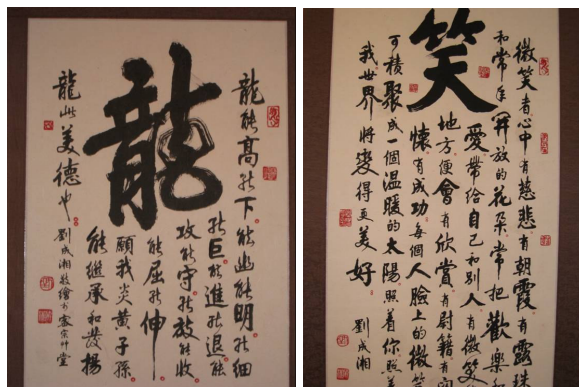 龍
龍能高能下能幽能明能細
能巨能進能退能
攻能守能放能收
能屈能伸
願我炎黃子孫
能繼承和發揚
龍此美德也
劉成湘
笑
微笑者心中有慈悲有朝霞有露珠
和常年開放的花朵常把歡樂和
愛帶給自己和別人有微笑
地方便會有欣賞有慰籍有
懷有成功每個人臉上的微笑
可積聚成一個溫暖的太陽照着你照
我世界將變得更美好
劉成湘